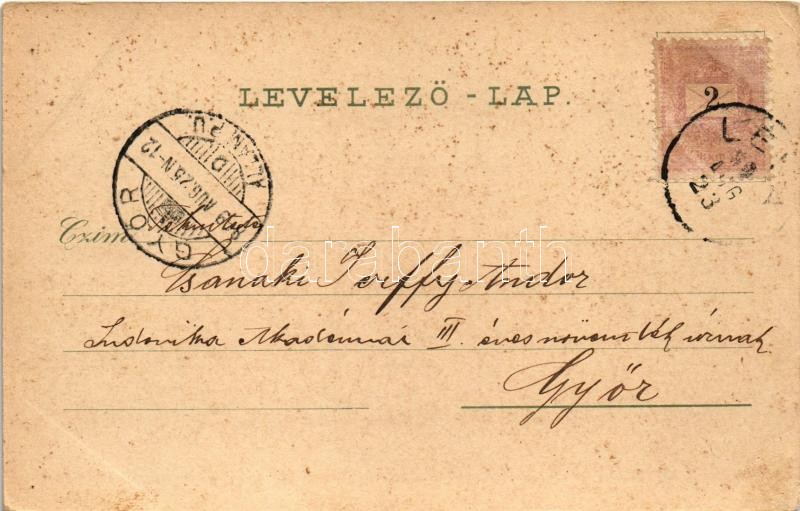 LEVELEZŐ-LAP.
2
GYŐR
AUG. 25. N-12
AUG 23
Czim
Csanaki Teffy Andor
Ludovika Akadémiai III. éves növendék úrnak
Győr
darabanth